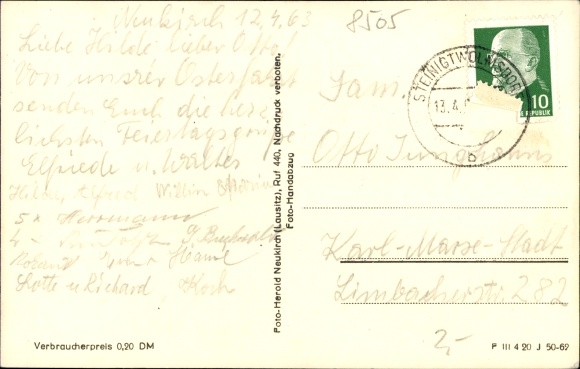 Neukirch 12.4.63
8505
Liebe Hilde lieber Otto
Von unsrer Osterfahrt
senden Euch die herz
lichsten Feiertagsgrüße
Elfriede u. Walter
5 x Herrmann
Lotte u Richard Koch
Foto-Herold Neukirch (Lausitz), Ruf 440, Nachdruck verboten.
Foto-Handabzug
STEINIGTWOLMSDORF
13.4.
b
10
REPUBLIK
Fam.
Otto Junghanns
Karl-Marx-Stadt
Limbacherstr 282
2,-
Verbraucherpreis 0,20 DM
F III 4 20 J 50-62